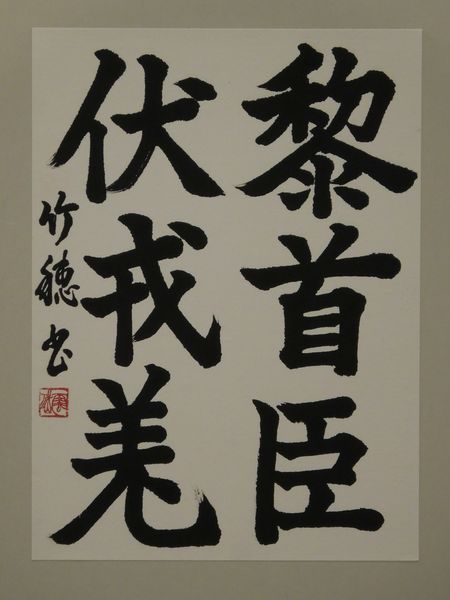 黎首臣
伏戎羌
竹穂書